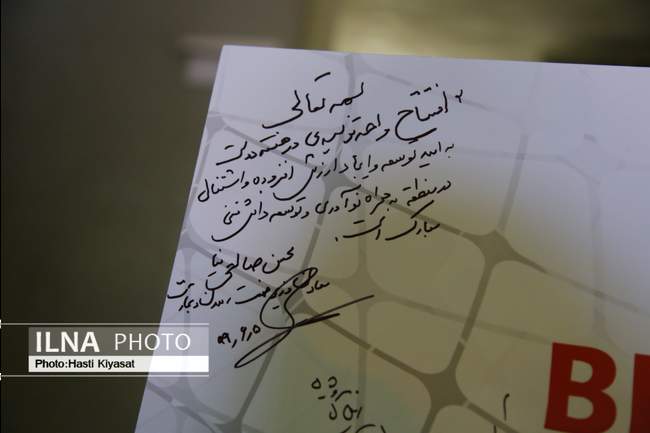 بسمه تعالی
افتتاح واحد تولیدی در هفته دولت
به امید توسعه و ایجاد ارزش افزوده و اشتغال
در منطقه به همراه نوآوری و توسعه دانش فنی
مبارک است.
محسن صالحی نیا
معاون وزیر صنعت، معدن و تجارت
۹۹,۶,۵
ILNA PHOTO
Photo:Hasti Kiyasat